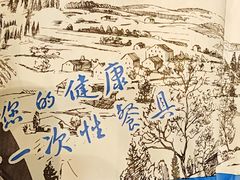 您的健康
一次性餐具